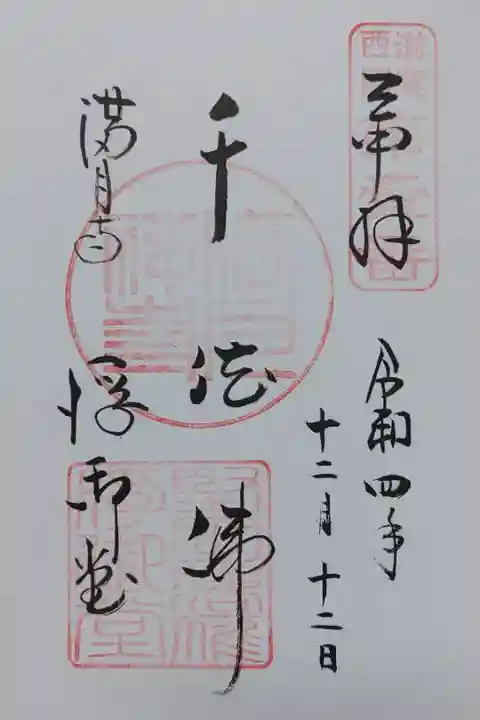 奉拝
令和四年
十二月十二日
千体佛
満月寺
浮御堂